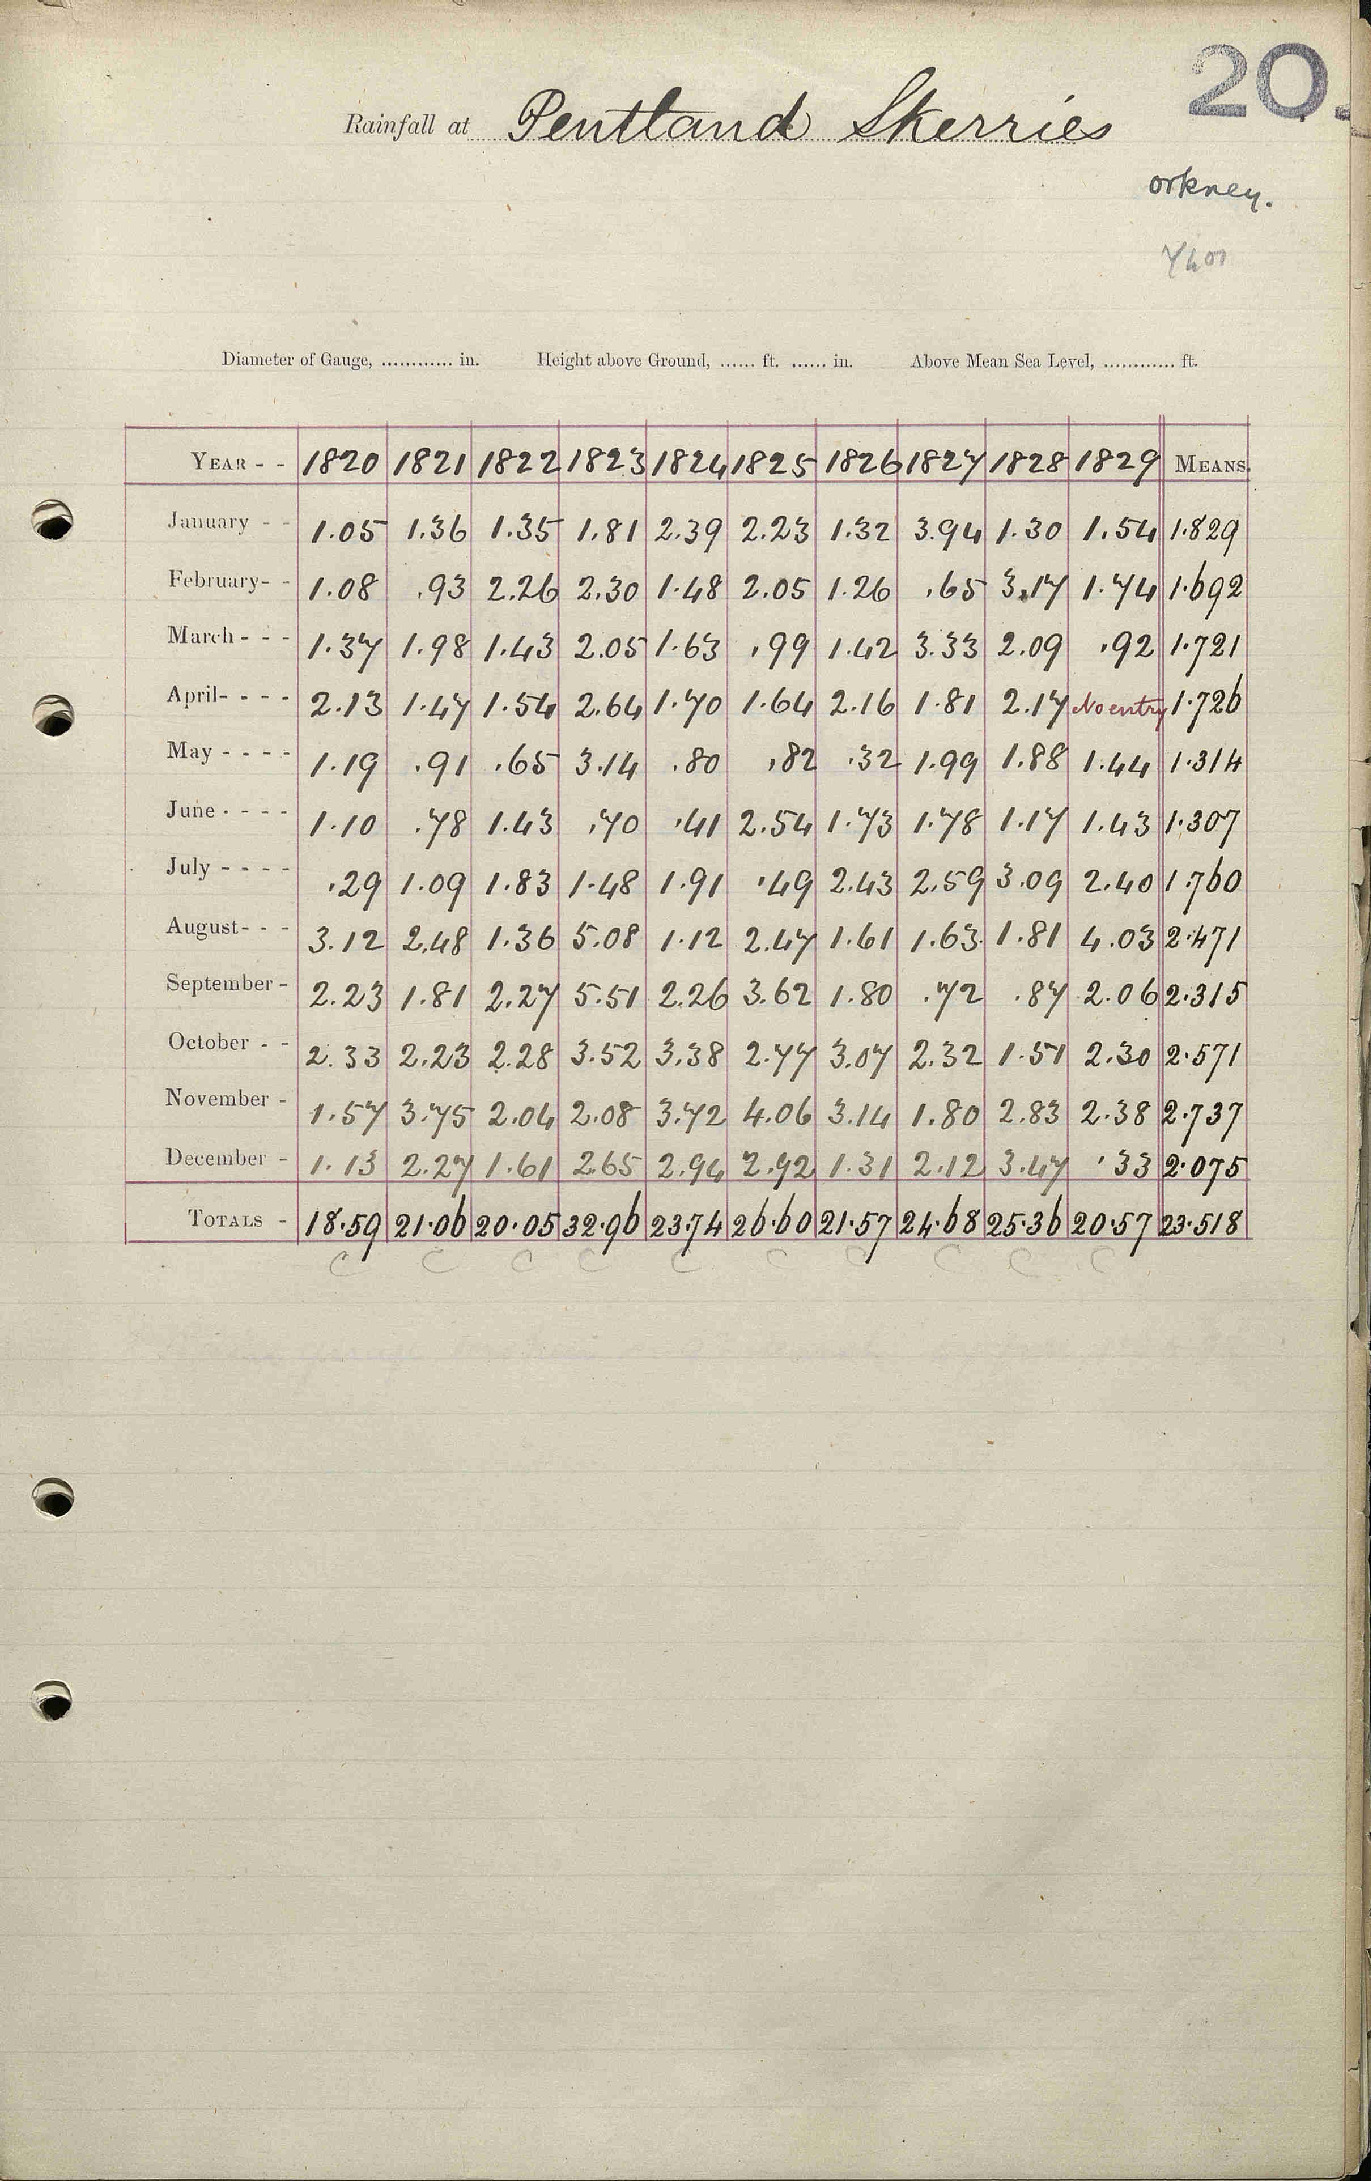 20.
Rainfall at Pentland Skerries
Orkney.
Diameter of Gauge, ............ in. Height above Ground, ...... ft. ...... in. Above Mean Sea Level, ............ ft.
YEAR - - 1820 1821 1822 1823 1824 1825 1826 1827 1828 1829 MEANS.
January - - 1.05 1.36 1.35 1.81 2.39 2.23 1.32 3.94 1.30 1.54 1.829
February- - 1.08 .93 2.26 2.30 1.48 2.05 1.26 .65 3.17 1.74 1.692
March - - - 1.37 1.98 1.43 2.05 1.63 .99 1.42 3.33 2.09 .92 1.721
April- - - - 2.13 1.47 1.54 2.64 1.70 1.64 2.16 1.81 2.17 No entry 1.726
May - - - - 1.19 .91 .65 3.14 .80 .82 .32 1.99 1.88 1.44 1.314
June - - - - 1.10 .78 1.43 .70 .41 2.54 1.73 1.78 1.17 1.43 1.307
July - - - - .29 1.09 1.83 1.48 1.91 .49 2.43 2.59 3.09 2.40 1.760
August- - - 3.12 2.48 1.36 5.08 1.12 2.47 1.61 1.63 1.81 4.03 2.471
September - 2.23 1.81 2.27 5.51 2.26 3.62 1.80 .72 .87 2.06 2.315
October - - 2.33 2.23 2.28 3.52 3.38 2.77 3.07 2.32 1.51 2.30 2.571
November - 1.57 3.75 2.04 2.08 3.72 4.06 3.14 1.80 2.83 2.38 2.737
December - 1.13 2.27 1.61 2.65 2.94 2.92 1.31 2.12 3.47 .33 2.075
TOTALS - 18.59 21.06 20.05 32.96 23.74 26.60 21.57 24.68 25.36 20.57 23.518
C C C C C C C C C C